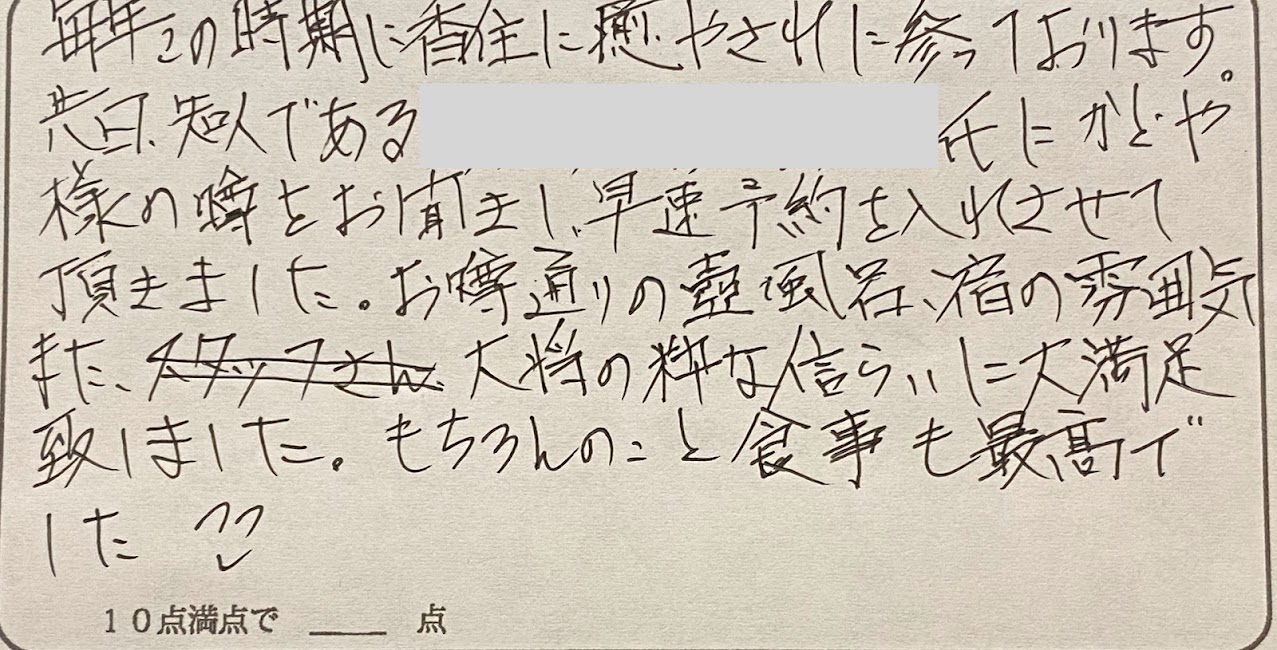 毎年この時期に香住に癒やされに参っております。
先日、知人である 氏にかどや
様の噂をお聞きし、早速予約を入れさせて
頂きました。お噂通りの壺風呂、宿の雰囲気
また、スタッフさん、大将の粋な計らいに大満足
致しました。もちろんのこと食事も最高で
した
10点満点で ____ 点